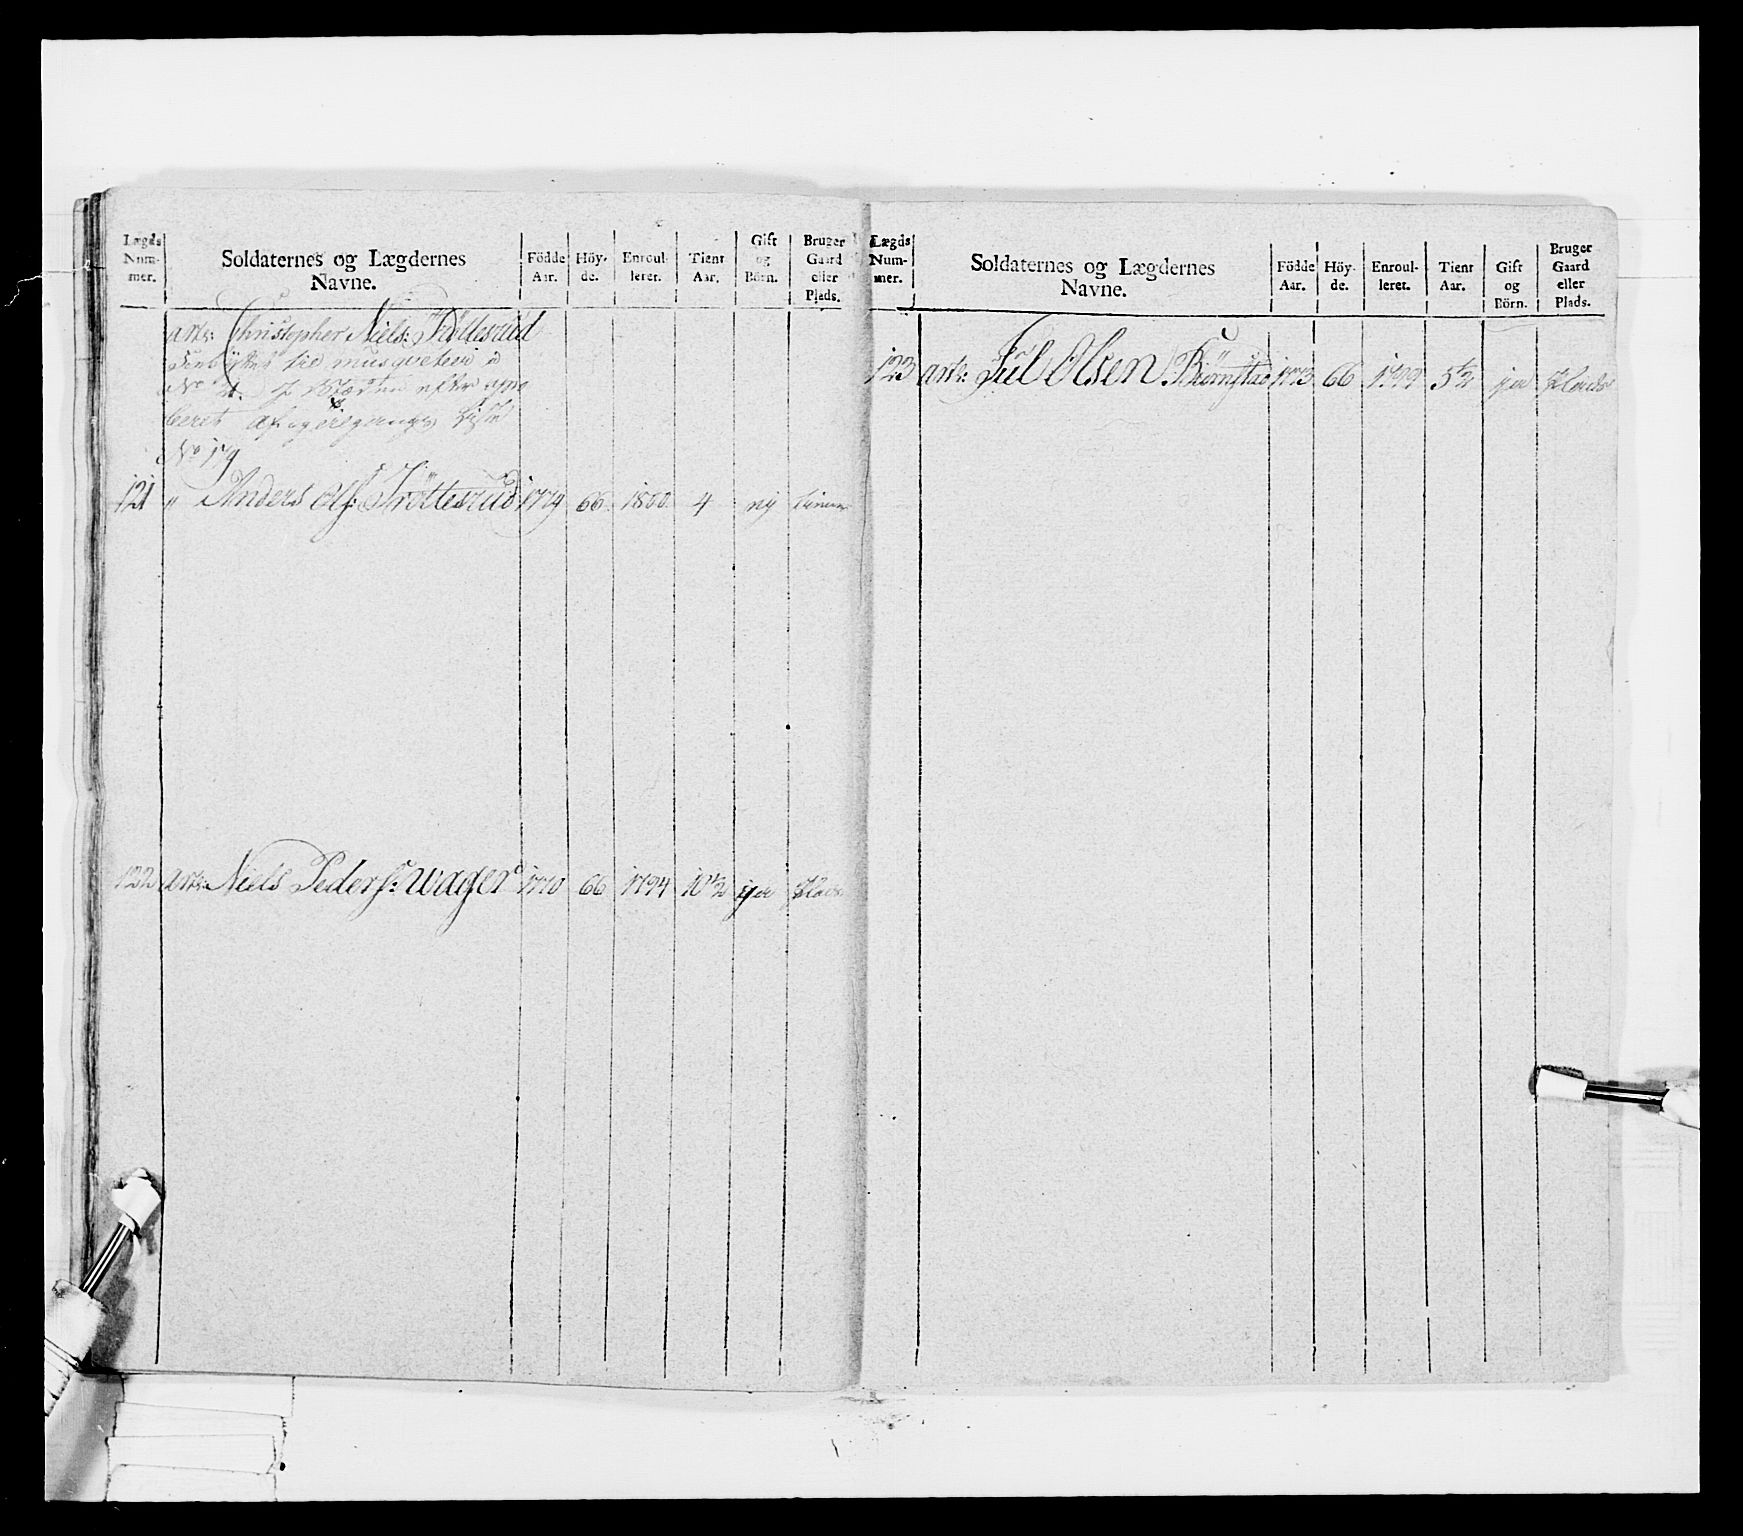 Lægds Num- mer.
Soldaternes og Lægdernes Navne.
Födde Aar.
Höy- de.
Enroul- leret.
Tient Aar.
Gift og Börn.
Bruger Gaard eller Plads.
arts: Christopher Niels: Tröttesrud
til musqveteer
No 4
No 19
121 " Anders Ols: Tröttesrud 1779 66 1800 4 ny
122 arts: Niels Peders: Wager 1770 66 1794 10 1/2 Plads
Lægds Num- mer.
Soldaternes og Lægdernes Navne.
Födde Aar.
Höy- de.
Enroul- leret.
Tient Aar.
Gift og Börn.
Bruger Gaard eller Plads.
123 arts: Juel Olsen Biörnstad 1773 66 1799 5 1/2 Plads